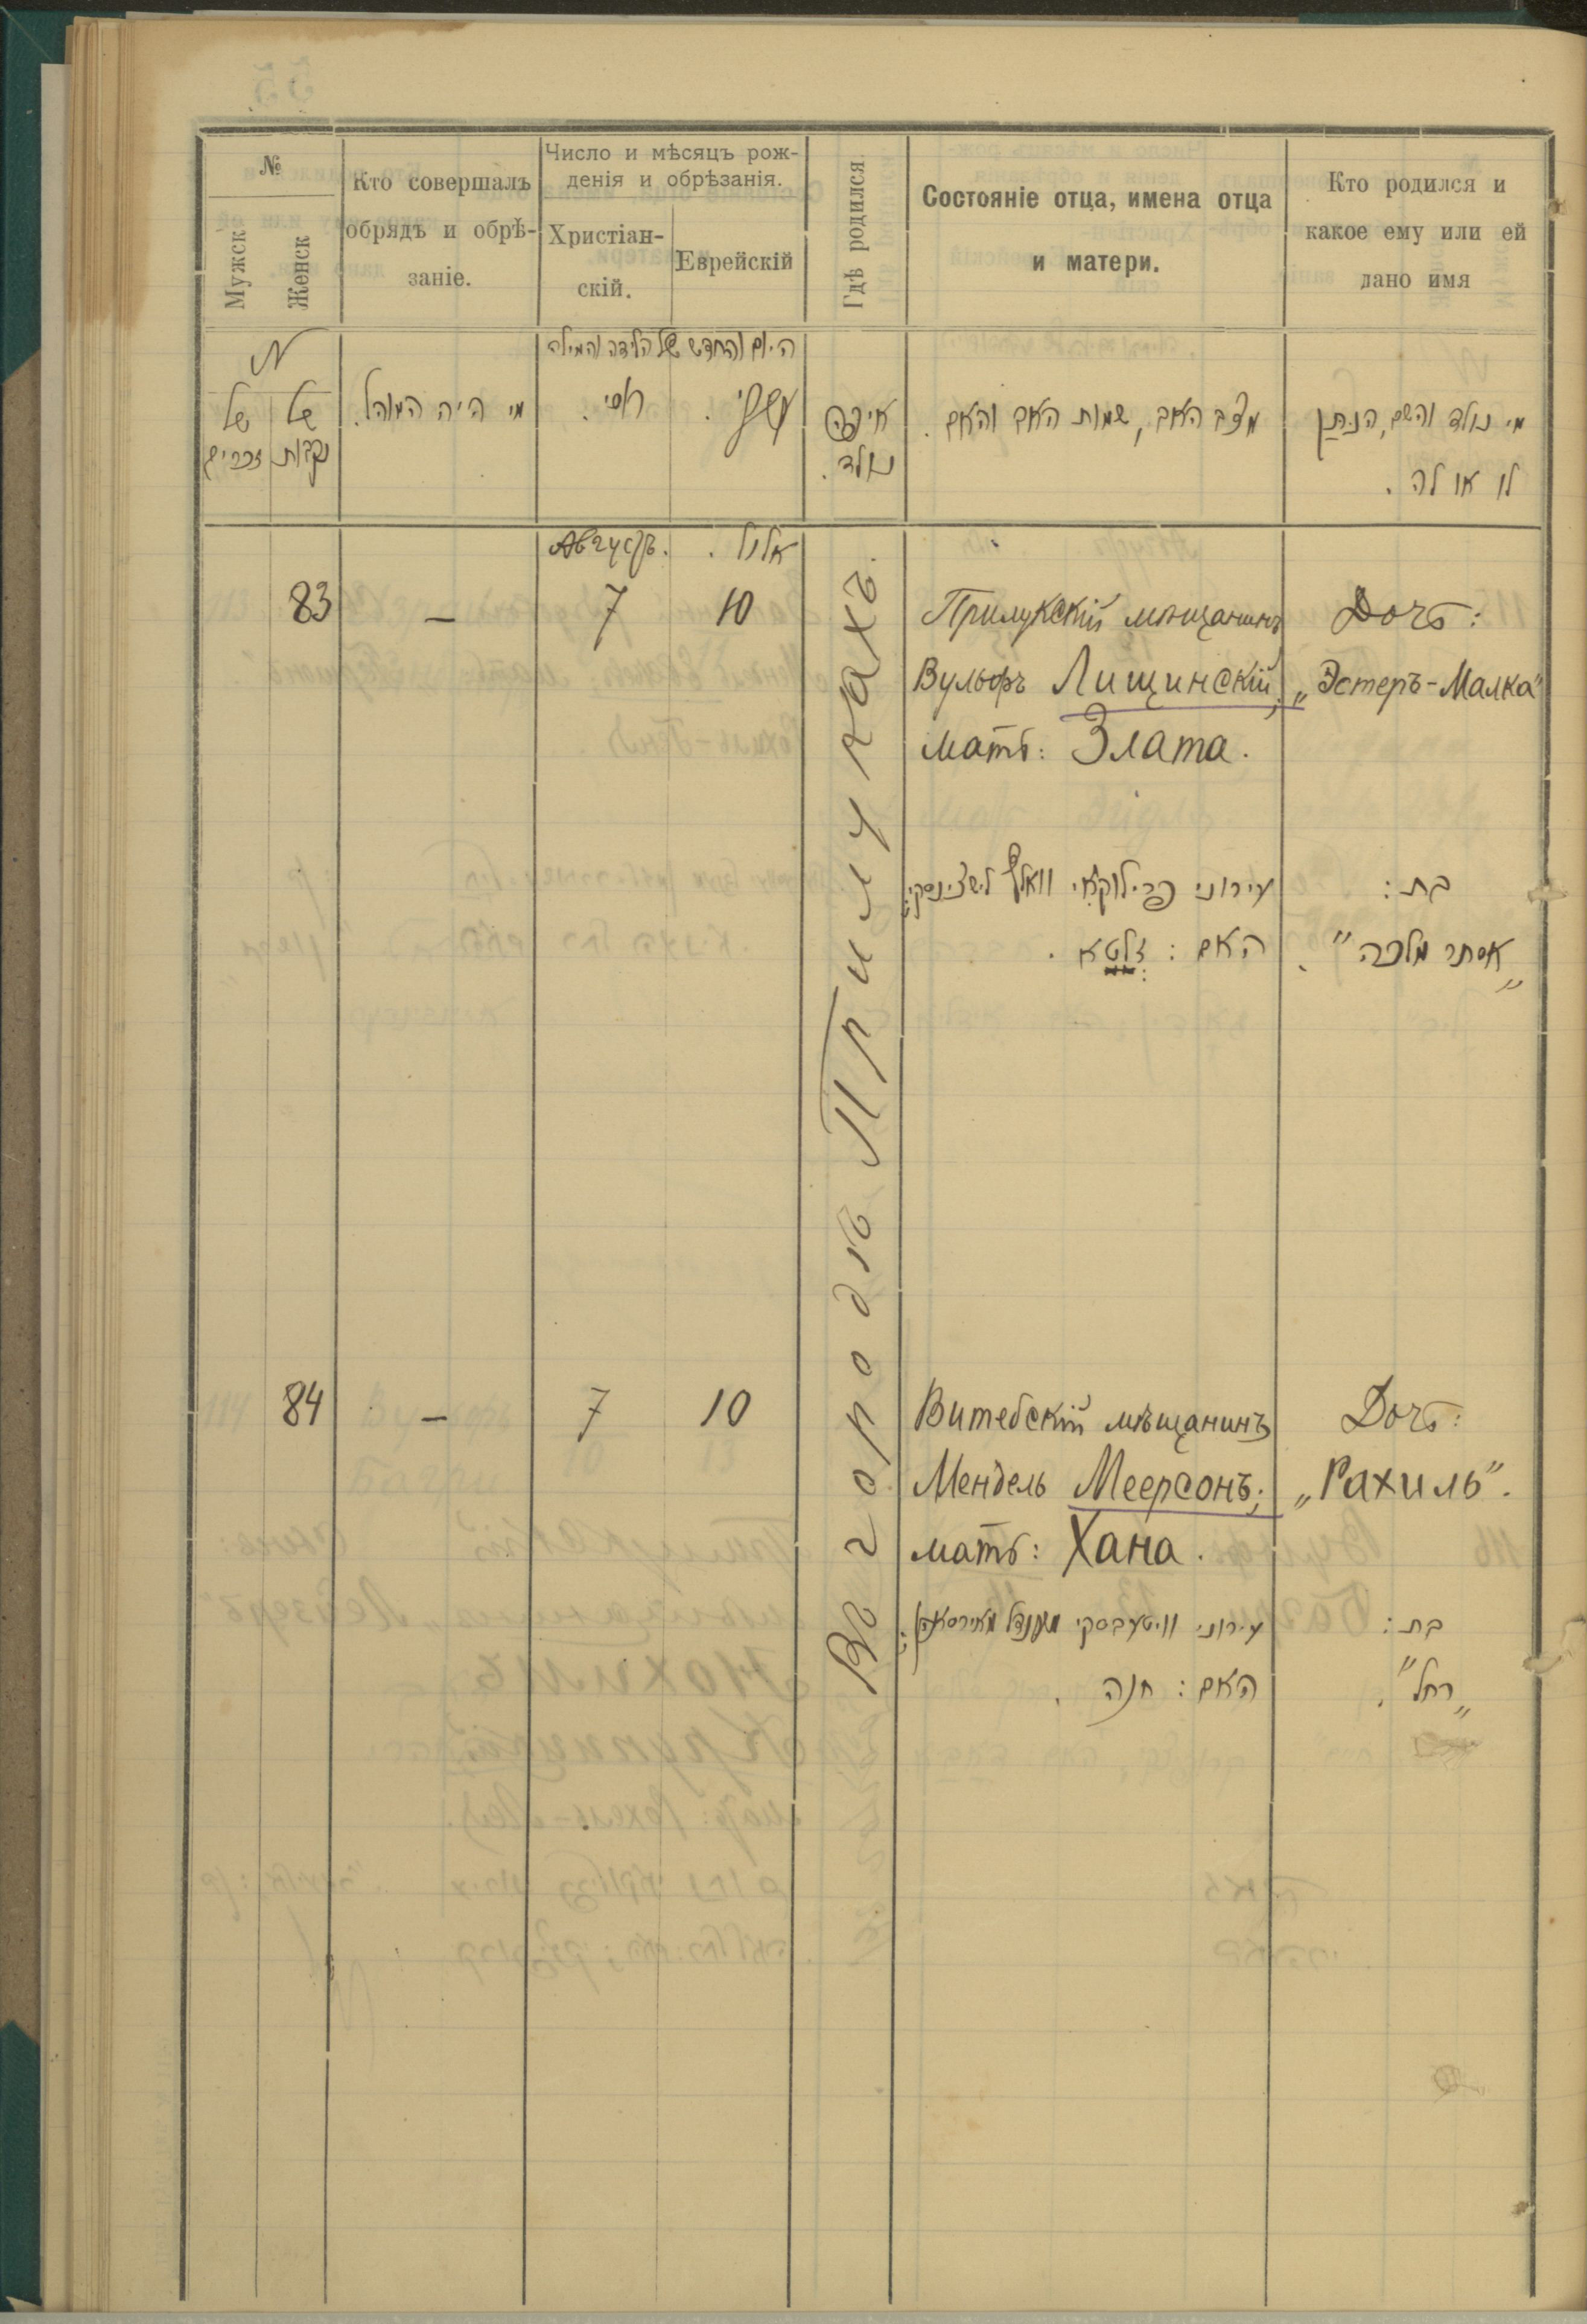 №
Мужск
Женск
Кто совершалъ
обрядъ и обрѣ-
заніе.
Число и мѣсяцъ рож-
денія и обрѣзанія.
Христіан-
скій.
Еврейскій
Гдѣ родился
Состояніе отца, имена отца
и матери.
Кто родился и
какое ему или ей
дано имя
N
של
זכרים
של
נקבות
מי היה המוהל.
היום והחדש של הלידה והמילה
איפה
נולד.
מצב האב, שמות האב והאם.
מי נולד והשם, הניתן
לו או לה.
Августъ.
אלול.
83
—
7
10
Въ городѣ Прилукахъ.
Прилукскій мѣщанинъ
Вульфъ Лищинскій;
мать: Злата.
Дочь:
„Эстеръ-Малка"
עירוני פרילוקאי וואלף לישצינסקי;
האם: זלטא.
בת:
„אסתר מלכה".
84
—
7
10
Витебскій мѣщанинъ
Мендель Меерсонъ;
мать: Хана.
Дочь:
„Рахиль".
עירוני וויטעבסקי מענדל מאירסאהן;
האם: חנה.
בת:
„רחל".